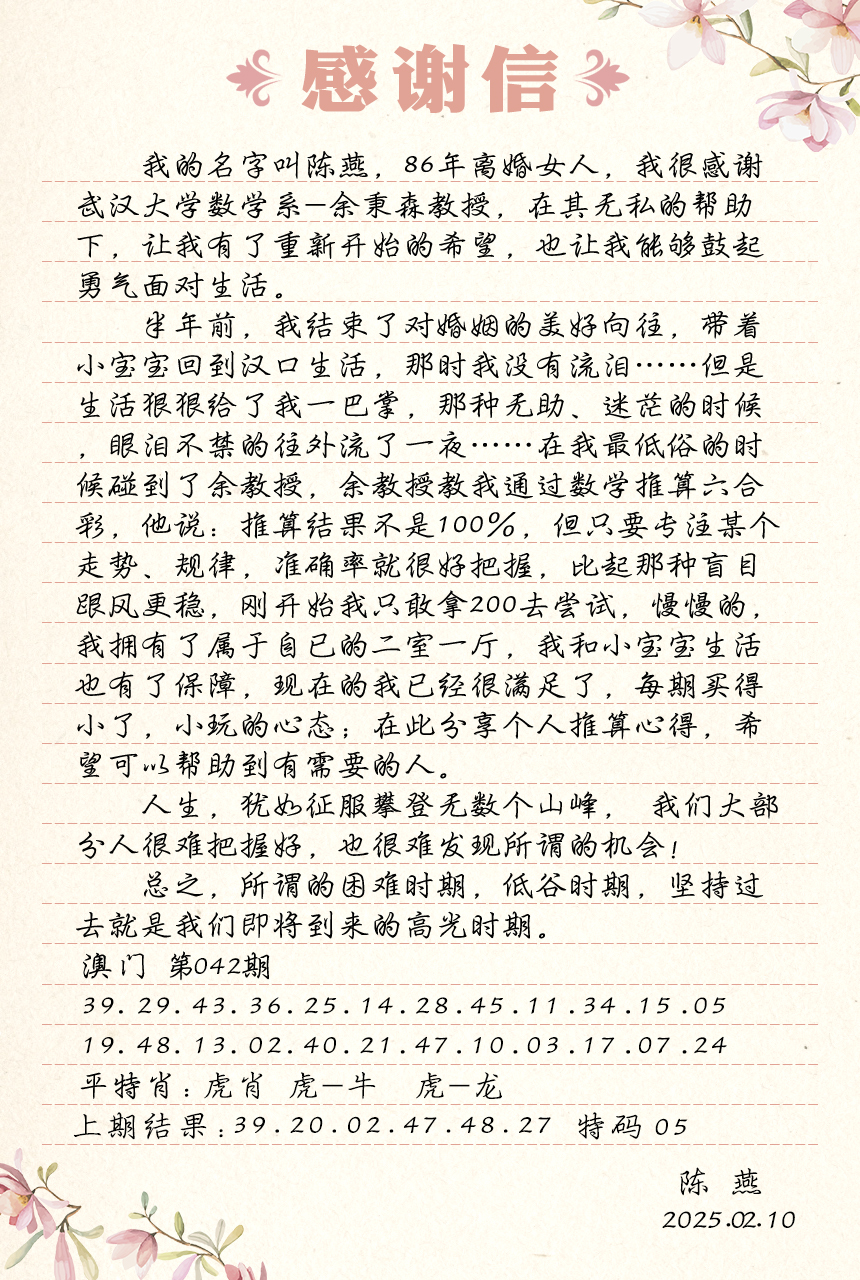 感谢信
我的名字叫陈燕，86年离婚女人，我很感谢
武汉大学数学系—余秉森教授，在其无私的帮助
下，让我有了重新开始的希望，也让我能够鼓起
勇气面对生活。
半年前，我结束了对婚姻的美好向往，带着
小宝宝回到汉口生活，那时我没有流泪……但是
生活狠狠给了我一巴掌，那种无助、迷茫的时候
，眼泪不禁的往外流了一夜……在我最低俗的时
候碰到了余教授，余教授教我通过数学推算六合
彩，他说：推算结果不是100%，但只要专注某个
走势、规律，准确率就很好把握，比起那种盲目
跟风更稳，刚开始我只敢拿200去尝试，慢慢的，
我拥有了属于自已的二室一厅，我和小宝宝生活
也有了保障，现在的我已经很满足了，每期买得
小了，小玩的心态；在此分享个人推算心得，希
望可以帮助到有需要的人。
人生，犹如征服攀登无数个山峰， 我们大部
分人很难把握好，也很难发现所谓的机会！
总之，所谓的困难时期，低谷时期，坚持过
去就是我们即将到来的高光时期。
澳门 第042期
39.29.43.36.25.14.28.45.11.34.15.05
19.48.13.02.40.21.47.10.03.17.07.24
平特肖：虎肖 虎—牛 虎—龙
上期结果：39.20.02.47.48.27 特码 05
陈 燕
2025.02.10